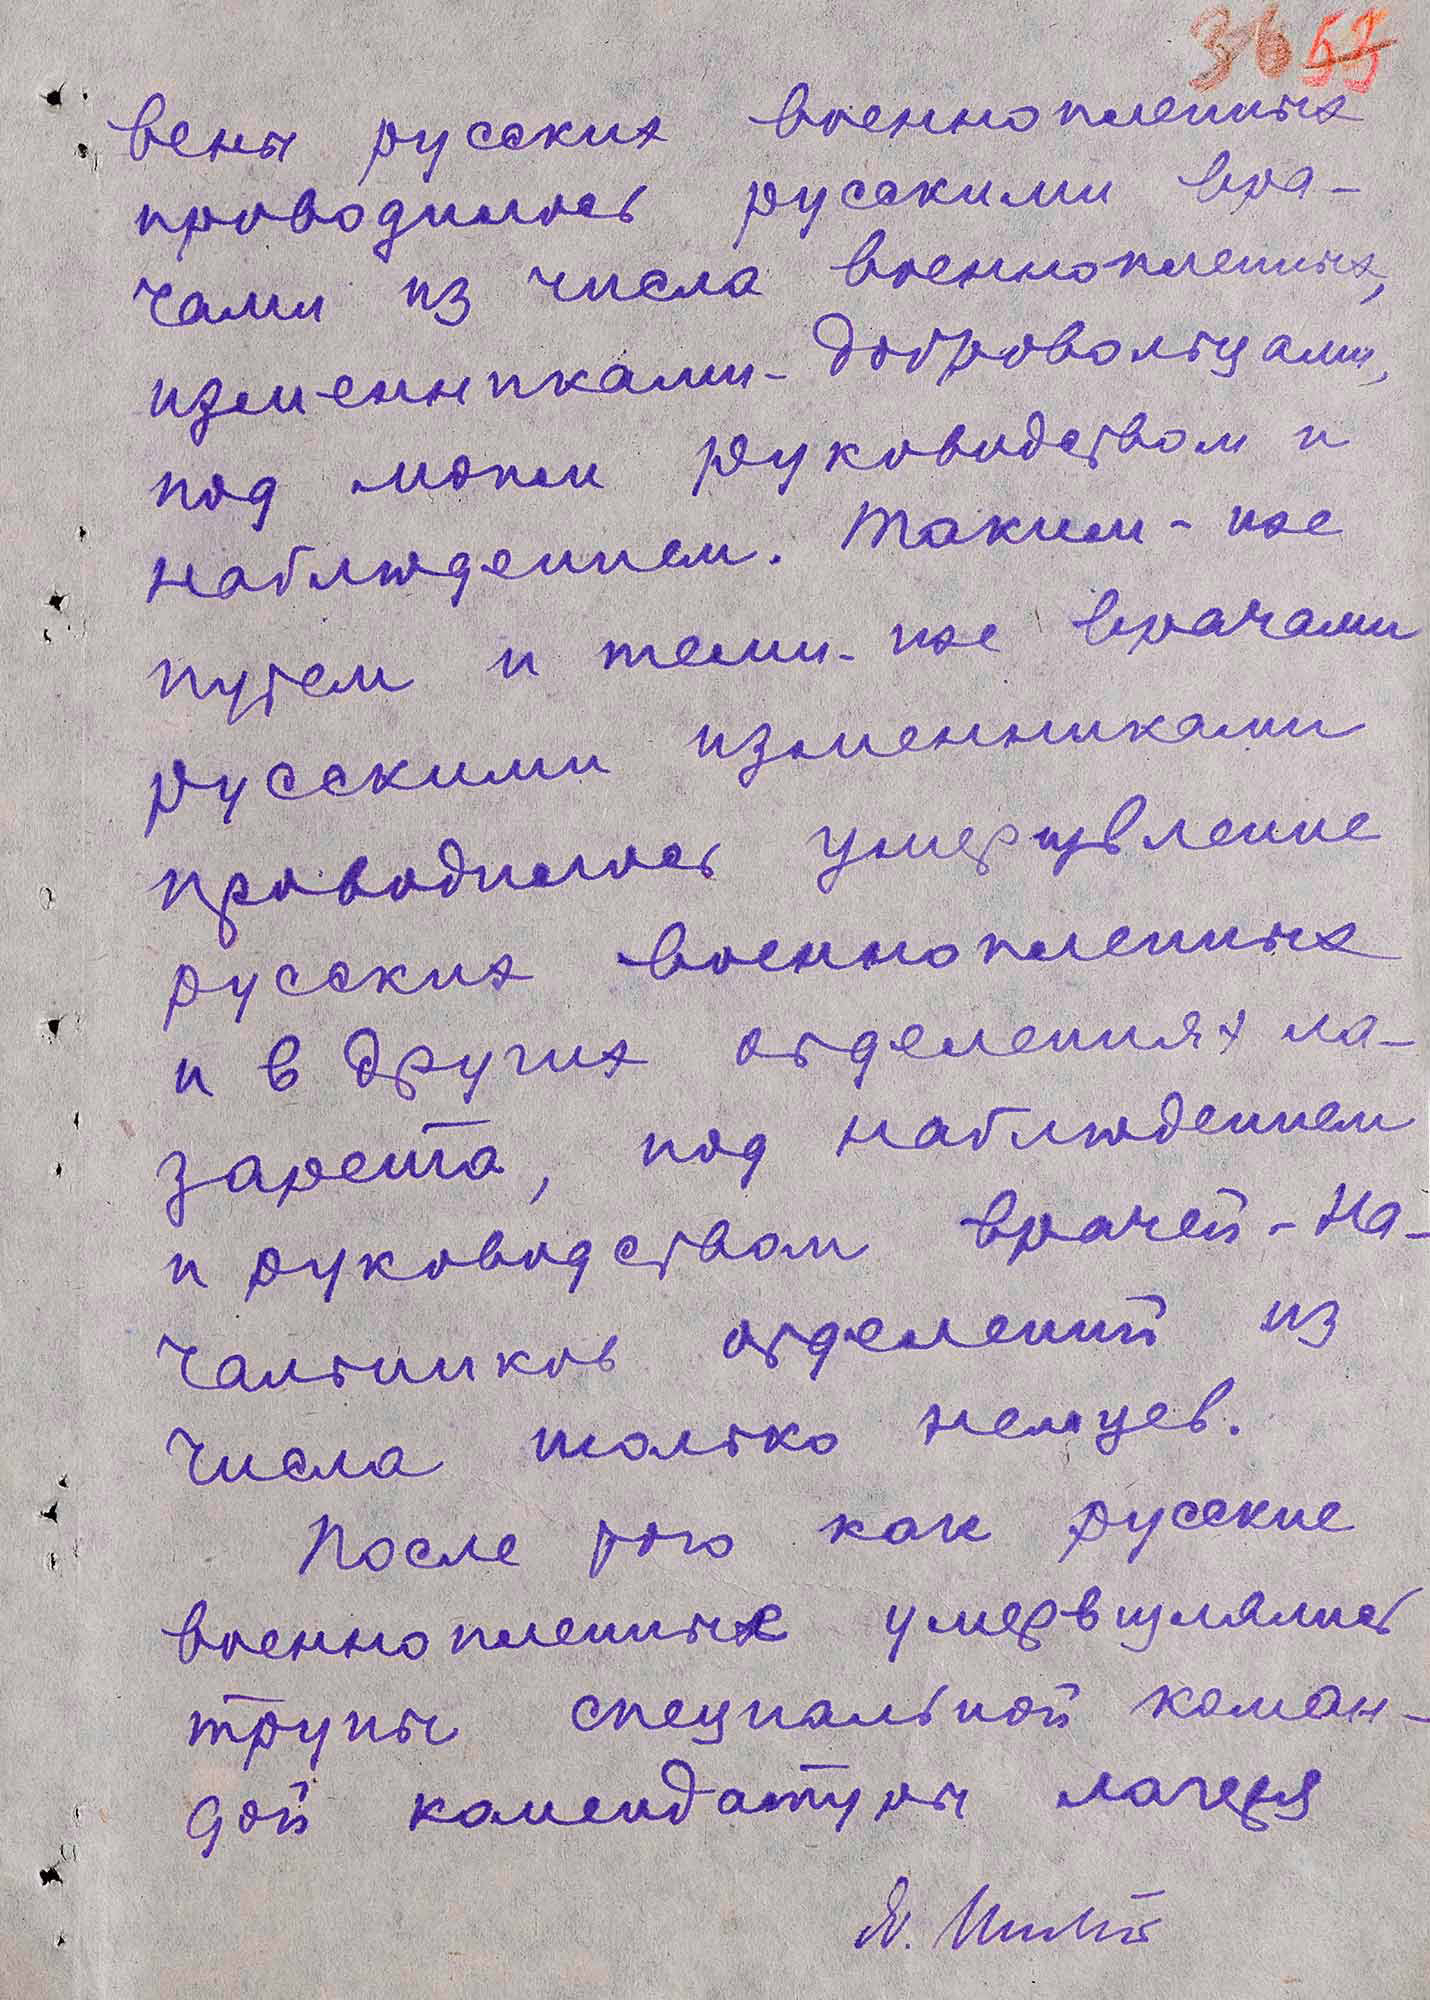 36 53
вены русских военнопленных
проводилось русскими вра-
чами из числа военнопленных,
изменниками-добровольцами,
под моим руководством и
наблюдением. Таким-же
путем и теми-же врачами
русскими изменниками
проводилось умерщвление
русских военнопленных
и в других отделениях ла-
зарета, под наблюдением
и руководством врачей-на-
чальников отделений из
числа только немцев.
После того как русские
военнопленные умервщлялись
трупы специальной коман-
дой комендатуры лагеря